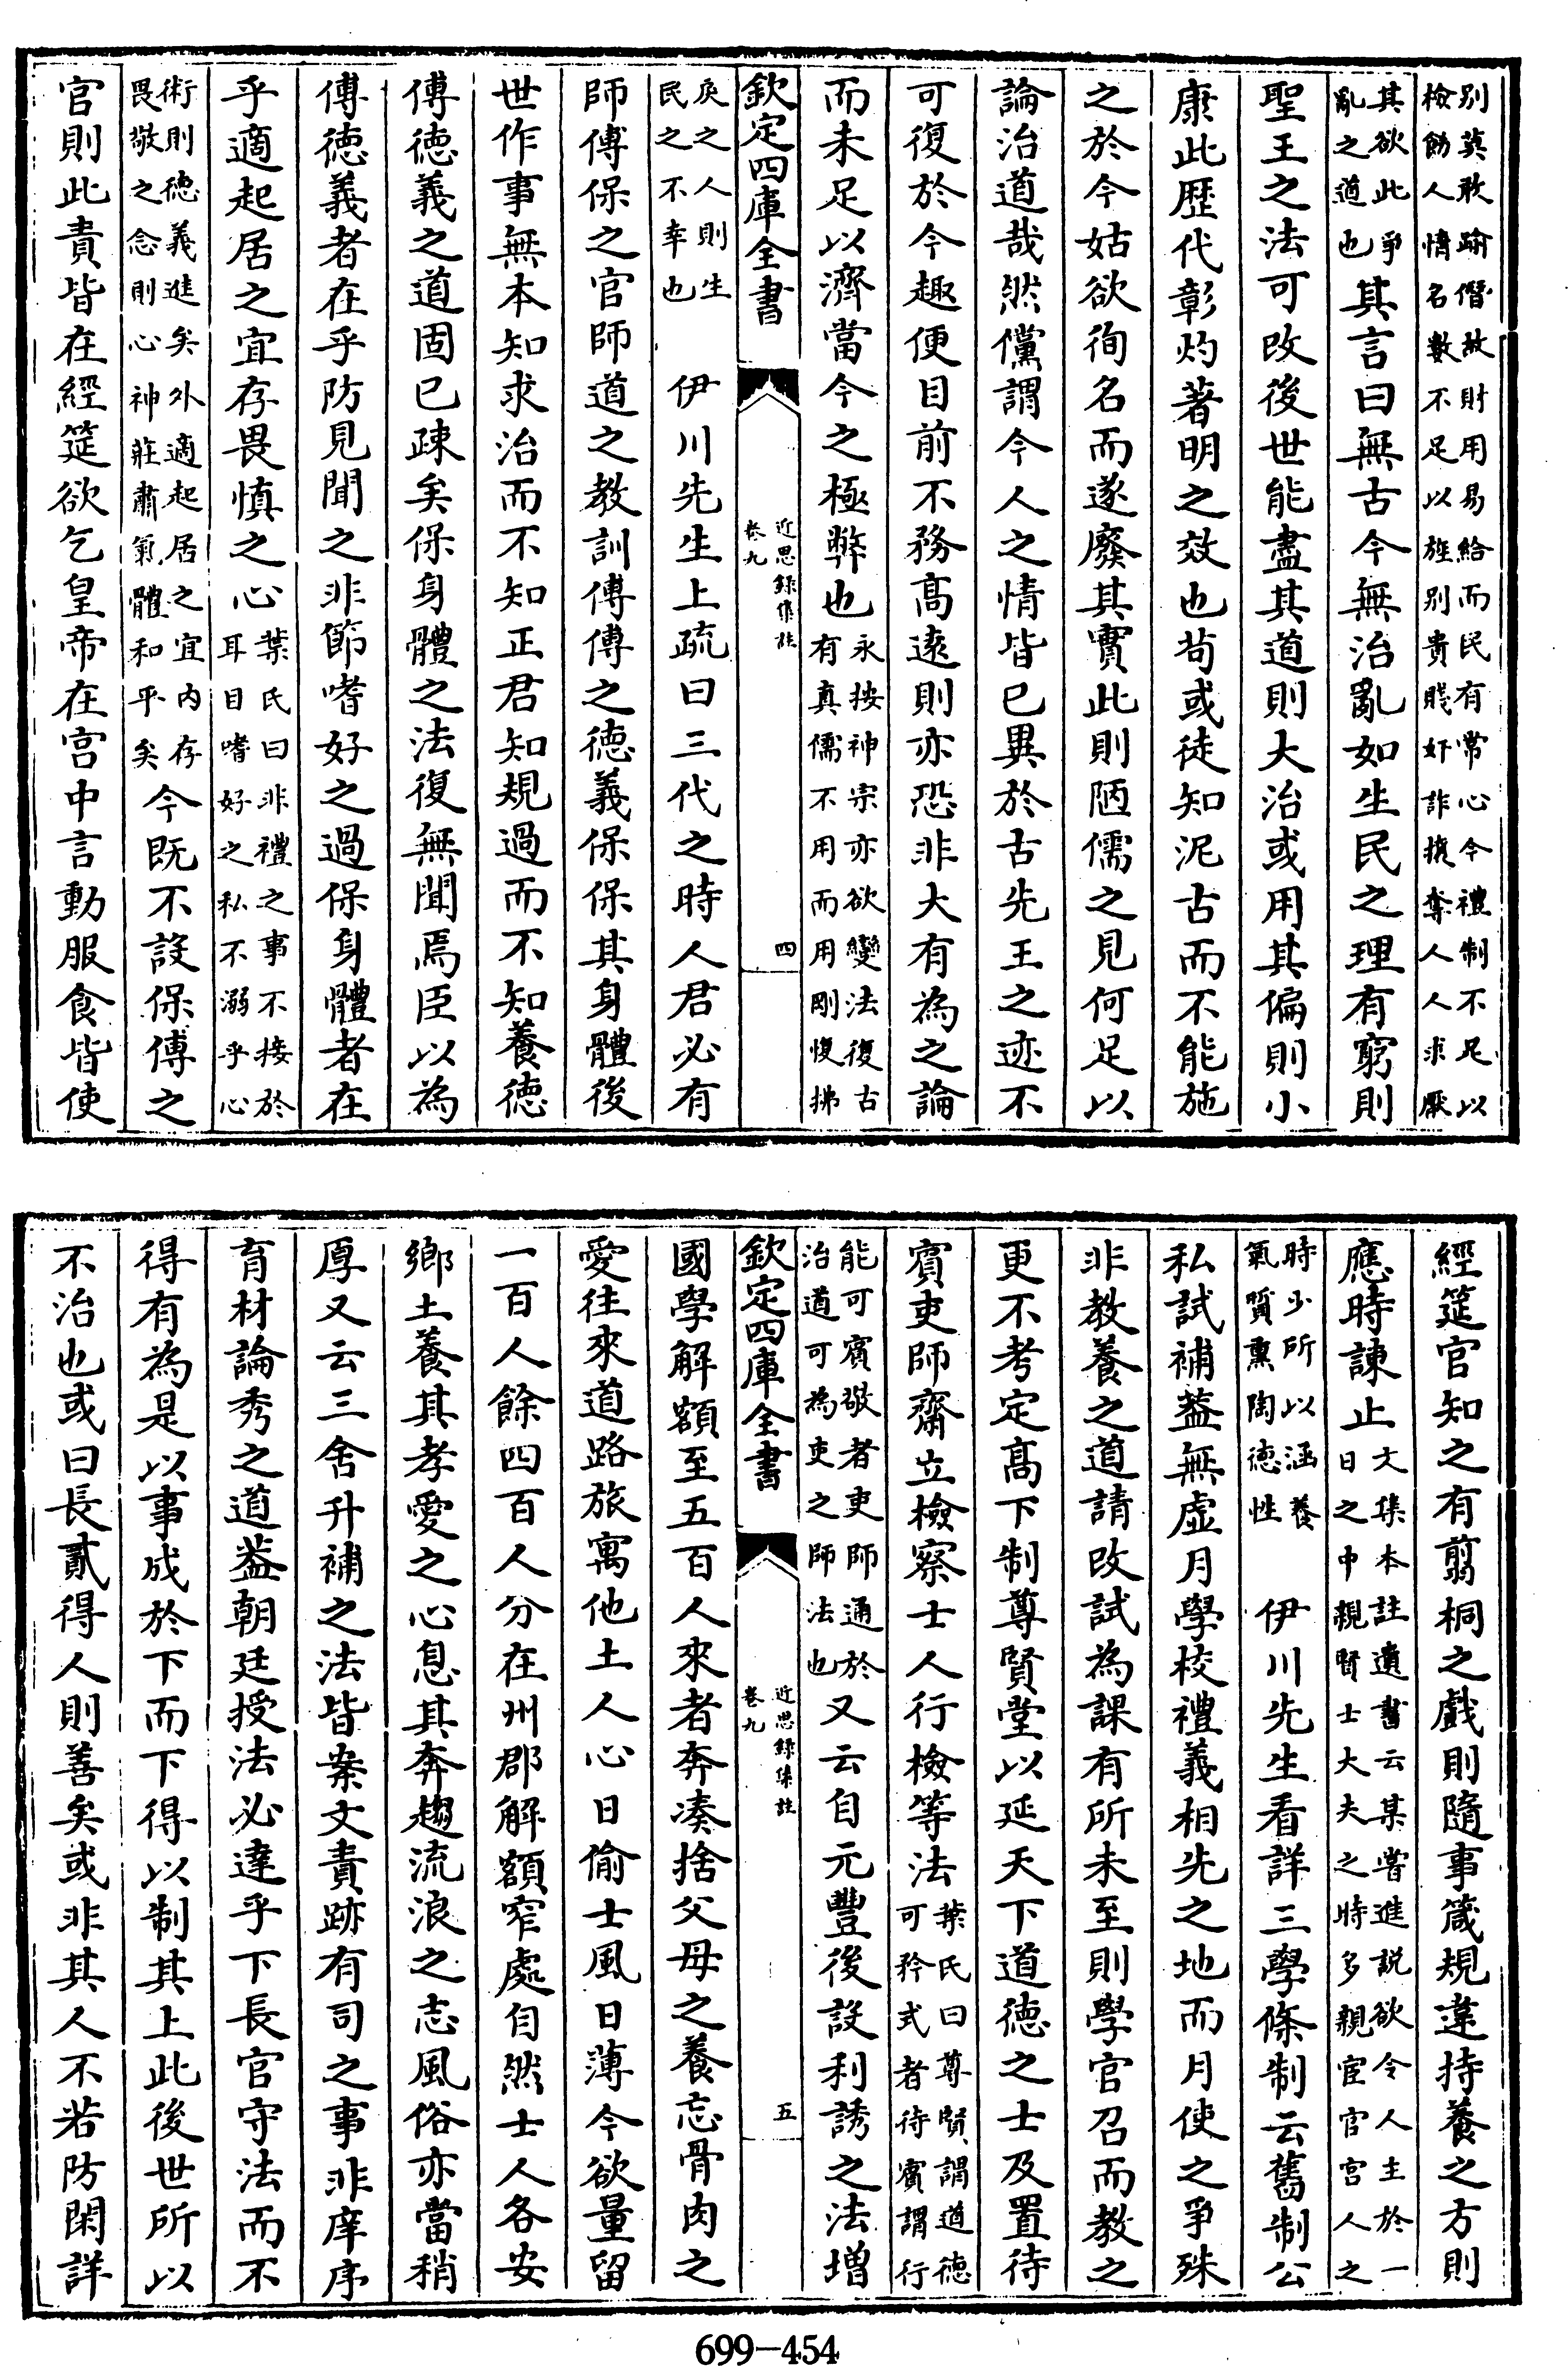 別莫敢踰僭故財用易給而民有常心今禮制不足以
檢飭人情名數不足以旌別貴賤奸詐攘奪人人求厭
其欲此爭
亂之道也其言曰無古今無治亂如生民之理有窮則
聖王之法可改後世能盡其道則大治或用其偏則小
康此歴代彰灼著明之效也茍或徒知泥古而不能施
之於今姑欲徇名而遂廢其實此則陋儒之見何足以
論治道哉然儻謂今人之情皆已異於古先王之迹不
可復於今趣便目前不務高逺則亦恐非大有為之論
而未足以濟當今之極弊也永按神宗亦欲變法復古
有真儒不用而用剛愎拂
欽定四庫全書
近思錄集註
卷九
四
戾之人則生
民之不幸也
伊川先生上疏曰三代之時人君必有
師傅保之官師道之教訓傅傅之徳義保保其身體後
世作事無本知求治而不知正君知規過而不知養徳
傅徳義之道固已疎矣保身體之法復無聞焉臣以為
傅徳義者在乎防見聞之非節嗜好之過保身體者在
乎適起居之宜存畏慎之心葉氏曰非禮之事不接於
耳目嗜好之私不溺乎心
術則徳義進矣外適起居之宜内存
畏敬之念則心神莊肅氣體和平矣今既不設保傅之
官則此責皆在經筵欲乞皇帝在宫中言動服食皆使
經筵官知之有翦桐之戲則隨事箴規違持養之方則
應時諫止文集本註遺書云某嘗進説欲令人主於一
日之中親賢士大夫之時多親宦官宫人之
時少所以涵養
氣質熏陶徳性
伊川先生看詳三學條制云舊制公
私試補葢無虚月學校禮義相先之地而月使之爭殊
非教養之道請改試為課有所未至則學官召而教之
更不考定髙下制尊賢堂以延天下道徳之士及置待
賓吏師齋立檢察士人行檢等法葉氏曰尊賢謂道徳
可矜式者待賓謂行
能可賓敬者吏師通於
治道可為吏之師法也又云自元豐後設利誘之法增
欽定四庫全書
近思錄集註
卷九
五
國學解額至五百人來者奔湊捨父母之養忘骨肉之
愛往來道路旅寓他土人心日偷士風日薄今欲量留
一百人餘四百人分在州郡解額窄處自然士人各安
鄉土養其孝愛之心息其奔趨流浪之志風俗亦當稍
厚又云三舍升補之法皆案文責跡有司之事非庠序
育材論秀之道葢朝廷授法必達乎下長官守法而不
得有為是以事成於下而下得以制其上此後世所以
不治也或曰長貳得人則善矣或非其人不若防閑詳
699-454